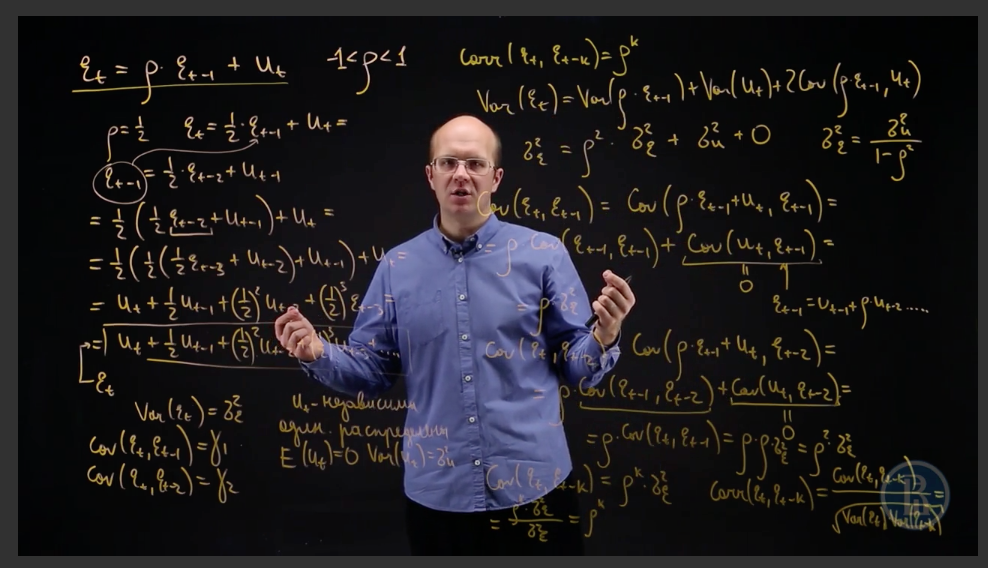 ε_t = ρ·ε_{t-1} + u_t   -1<ρ<1
ρ=1/2   ε_t = 1/2·ε_{t-1} + u_t =
ε_{t-1} = 1/2·ε_{t-2} + u_{t-1}
= 1/2 (1/2 ε_{t-2} + u_{t-1}) + u_t =
= 1/2 (1/2 (1/2 ε_{t-3} + u_{t-2}) + u_{t-1}) + u_t =
= u_t + 1/2 u_{t-1} + (1/2)^2 u_{t-2} + (1/2)^3 ε_{t-3} =
= u_t + 1/2 u_{t-1} + (1/2)^2 u_{t-2} + (1/2)^3 u_{t-3} + ....
ε_t
Var(ε_t) = σ²_ε
Cov(ε_t, ε_{t-1}) = γ_1
Cov(ε_t, ε_{t-2}) = γ_2
u_t - независимы
один. распределены
E(u_t)=0 Var(u_t)=σ²_u
Corr(ε_t, ε_{t-k}) = ρ^k
Var(ε_t) = Var(ρ·ε_{t-1}) + Var(u_t) + 2Cov(ρ·ε_{t-1}, u_t)
σ²_ε = ρ²·σ²_ε + σ²_u + 0   σ²_ε = σ²_u / (1-ρ²)
Cov(ε_t, ε_{t-1}) = Cov(ρ·ε_{t-1}+u_t, ε_{t-1}) =
= ρ Cov(ε_{t-1}, ε_{t-1}) + Cov(u_t, ε_{t-1}) =
0
ε_{t-1} = u_{t-1} + ρ·u_{t-2} .....
= ρ·σ²_ε
Cov(ε_t, ε_{t-2}) = Cov(ρ·ε_{t-1}+u_t, ε_{t-2}) =
= ρ·Cov(ε_{t-1}, ε_{t-2}) + Cov(u_t, ε_{t-2}) =
0
= ρ·Cov(ε_t, ε_{t-1}) = ρ·ρ·σ²_ε = ρ²·σ²_ε
Cov(ε_t, ε_{t-k}) = ρ^k·σ²_ε
Corr(ε_t, ε_{t-k}) = Cov(ε_t, ε_{t-k}) / √(Var(ε_t) Var(ε_{t-k})) =
= ρ^k·σ²_ε / σ²_ε = ρ^k